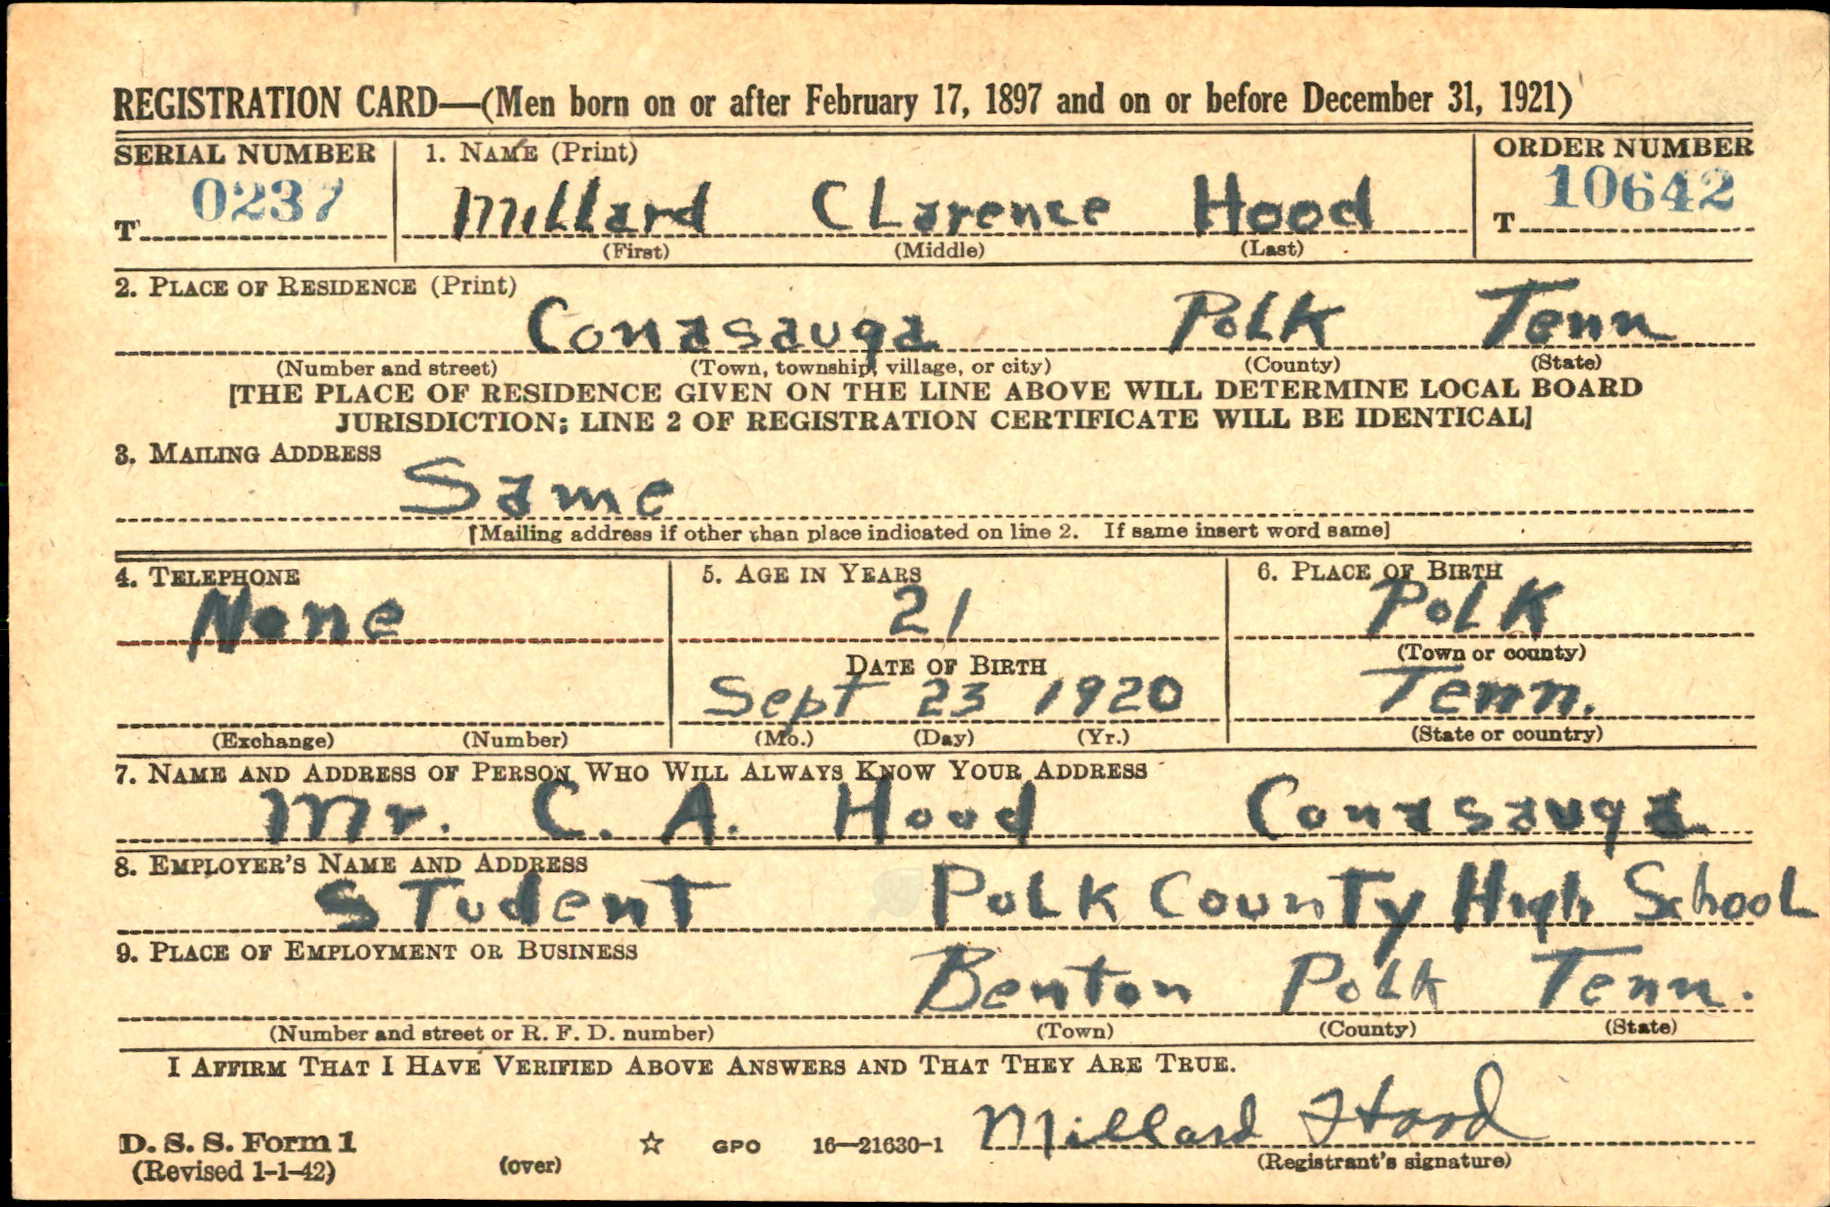 REGISTRATION CARD—(Men born on or after February 17, 1897 and on or before December 31, 1921)
SERIAL NUMBER 1. NAME (Print) ORDER NUMBER
T 0237 Millard Clarence Hood T 10642
(First) (Middle) (Last)
2. PLACE OF RESIDENCE (Print)
Conasauga Polk Tenn
(Number and street) (Town, township, village, or city) (County) (State)
[THE PLACE OF RESIDENCE GIVEN ON THE LINE ABOVE WILL DETERMINE LOCAL BOARD
JURISDICTION; LINE 2 OF REGISTRATION CERTIFICATE WILL BE IDENTICAL]
3. MAILING ADDRESS
Same
[Mailing address if other than place indicated on line 2. If same insert word same]
4. TELEPHONE 5. AGE IN YEARS 6. PLACE OF BIRTH
None 21 Polk
(Town or county)
DATE OF BIRTH
Sept 23 1920 Tenn.
(Exchange) (Number) (Mo.) (Day) (Yr.) (State or country)
7. NAME AND ADDRESS OF PERSON WHO WILL ALWAYS KNOW YOUR ADDRESS
Mr. C. A. Hood Conasauga
8. EMPLOYER'S NAME AND ADDRESS
Student Polk County High School
9. PLACE OF EMPLOYMENT OR BUSINESS
Benton Polk Tenn.
(Number and street or R. F. D. number) (Town) (County) (State)
I AFFIRM THAT I HAVE VERIFIED ABOVE ANSWERS AND THAT THEY ARE TRUE.
Millard Hood
D. S. S. Form 1 (over) ☆ GPO 16—21630-1 (Registrant's signature)
(Revised 1-1-42)